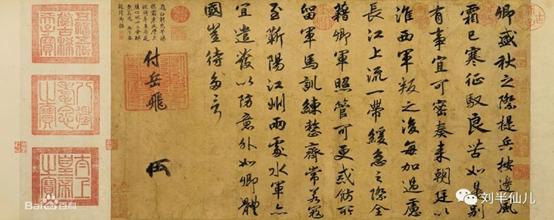 卿盛秋之際提兵按邊風
霜已寒征馭良苦如是別
有事宜可密奏來朝廷以
淮西軍叛之後每加過慮
長江上流一帶緩急之際全
藉卿軍照管可更戒飭所
留軍馬訓練整齊常若寇
至蘄陽江州兩處水軍亦
宜遣發以防意外如卿體
國豈待多言
付岳飛
八徵耄念之寶
太上皇帝之寶
Bai 百科
刘半仙儿